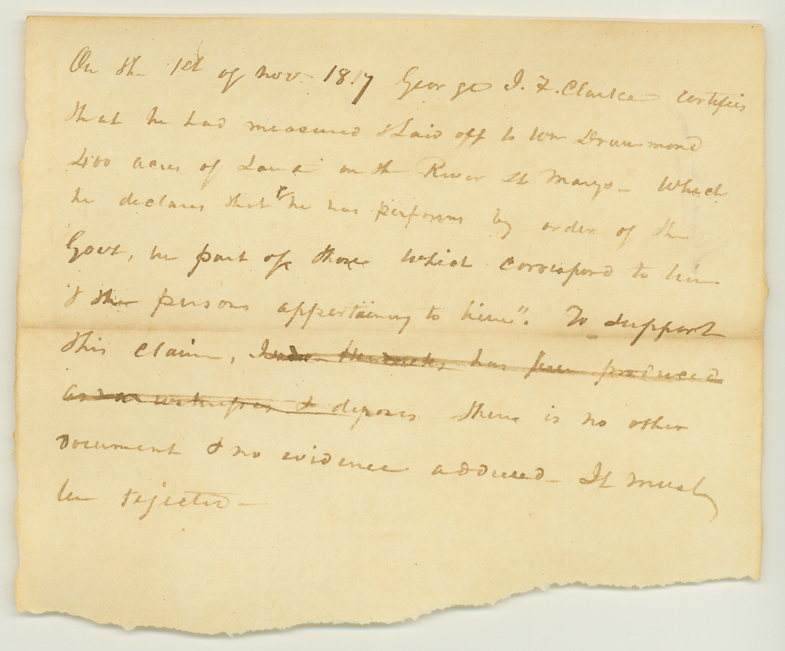 On the 1st of Nov. 1817 George I. F. Clarke certifies
that he had measured & laid off to Wm Drummond
400 acres of Land on the River St Marys— Which
he declares that he has performs by order of the
Govt, in part of those which correspond to him
& the persons appertaining to him". To support
this claim, has been produced
as a witness & deposes there is no other
document & no evidence adduced— It must
be rejected—